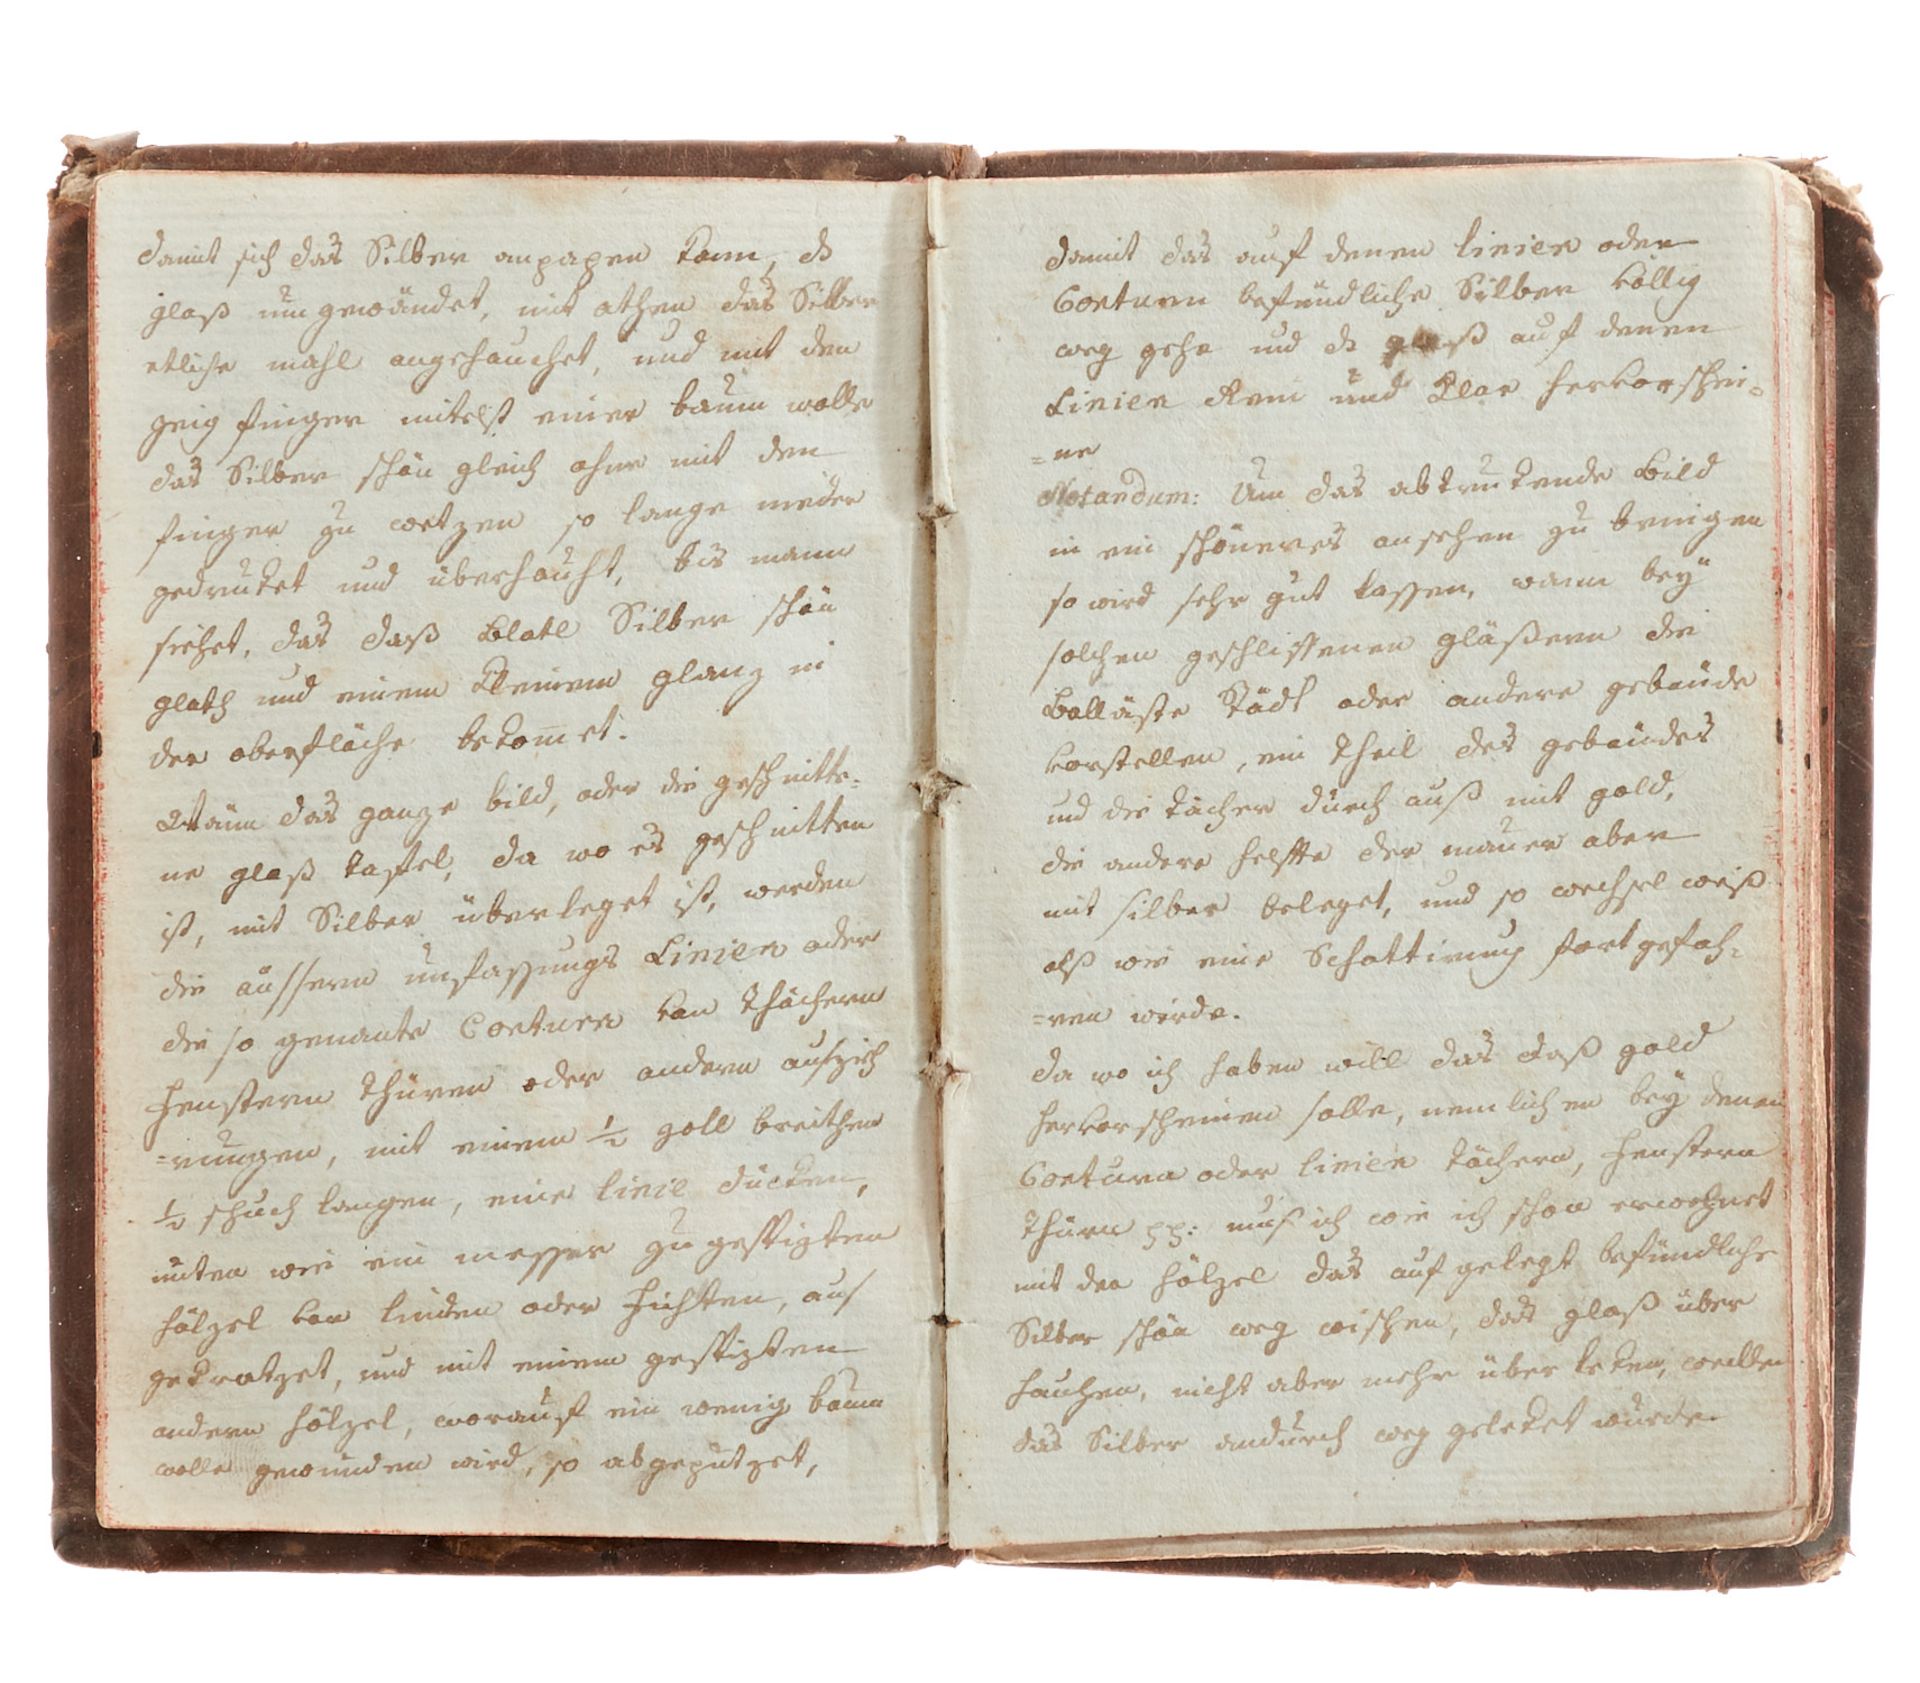 damit sich das Silber anpapen kann, ds
glaß umgewändet, mit athem das Silber
etliche mahl angehauchet, und mit dem
zeig finger mitelst einer baum wolle
das Silber schön gleich ohne mit den
finger zu wetzen so lange nieder
gedrucket und überhaucht, bis mann
siehet, das daß Blatl Silber schön
glath und einem kleinem glanz in
der oberfläche bekom̅et.
Wann das ganze bild, oder die geschnitte=
ne glaß tafel, da wo es geschnitten
ist, mit Silber überleget ist, werden
die äussern umfassungs Linien oder
die so genante Contuern von thächern
Fenstern thüren oder andern aufzich
=rungen, mit einem ½ zoll breithen
½ schuch langen, eine linie dicken,
unten wie ein messer zu gespizten
hölzel von linden oder Fichten, auf
gekratzet, und mit einem gespizten
andern hölzel, worauf ein wenig baum
wolle gewunden wird, so abgeputzet,
damit das auf denen linien oder
Contuern befindliche Silber völlig
weg gehe und ds glaß auf denen
Linien rein und klar hervorschei=
=ne
Notandum: Um das abdruckende Bild
in ein schöneres ansehen zu bringen
so wird sehr gut lassen, wann bey
solchen geschliffenen gläßern die
Balläste Städt oder andere gebäude
vorstellen, ein theil des gebäudes
und die tächer durch auß mit gold,
die andere helfte der mauer aber
mit silber beleget, und so wechsel weiß
alß wie eine Schattirung fortgefah=
=ren wirde.
Da wo ich haben will das daß gold
hervorscheinen solle, nemlichen bey denen
Conturn oder linien tächern, Fenstern
thürn pp: muß ich wie ich schon erwehnet
mit den hölzel das aufgelegt befindliche
Silber schön weg wischen, das glaß über
hauchen, nicht aber mehr über leken, weillen
das Silber andurch weg geleket wurde.